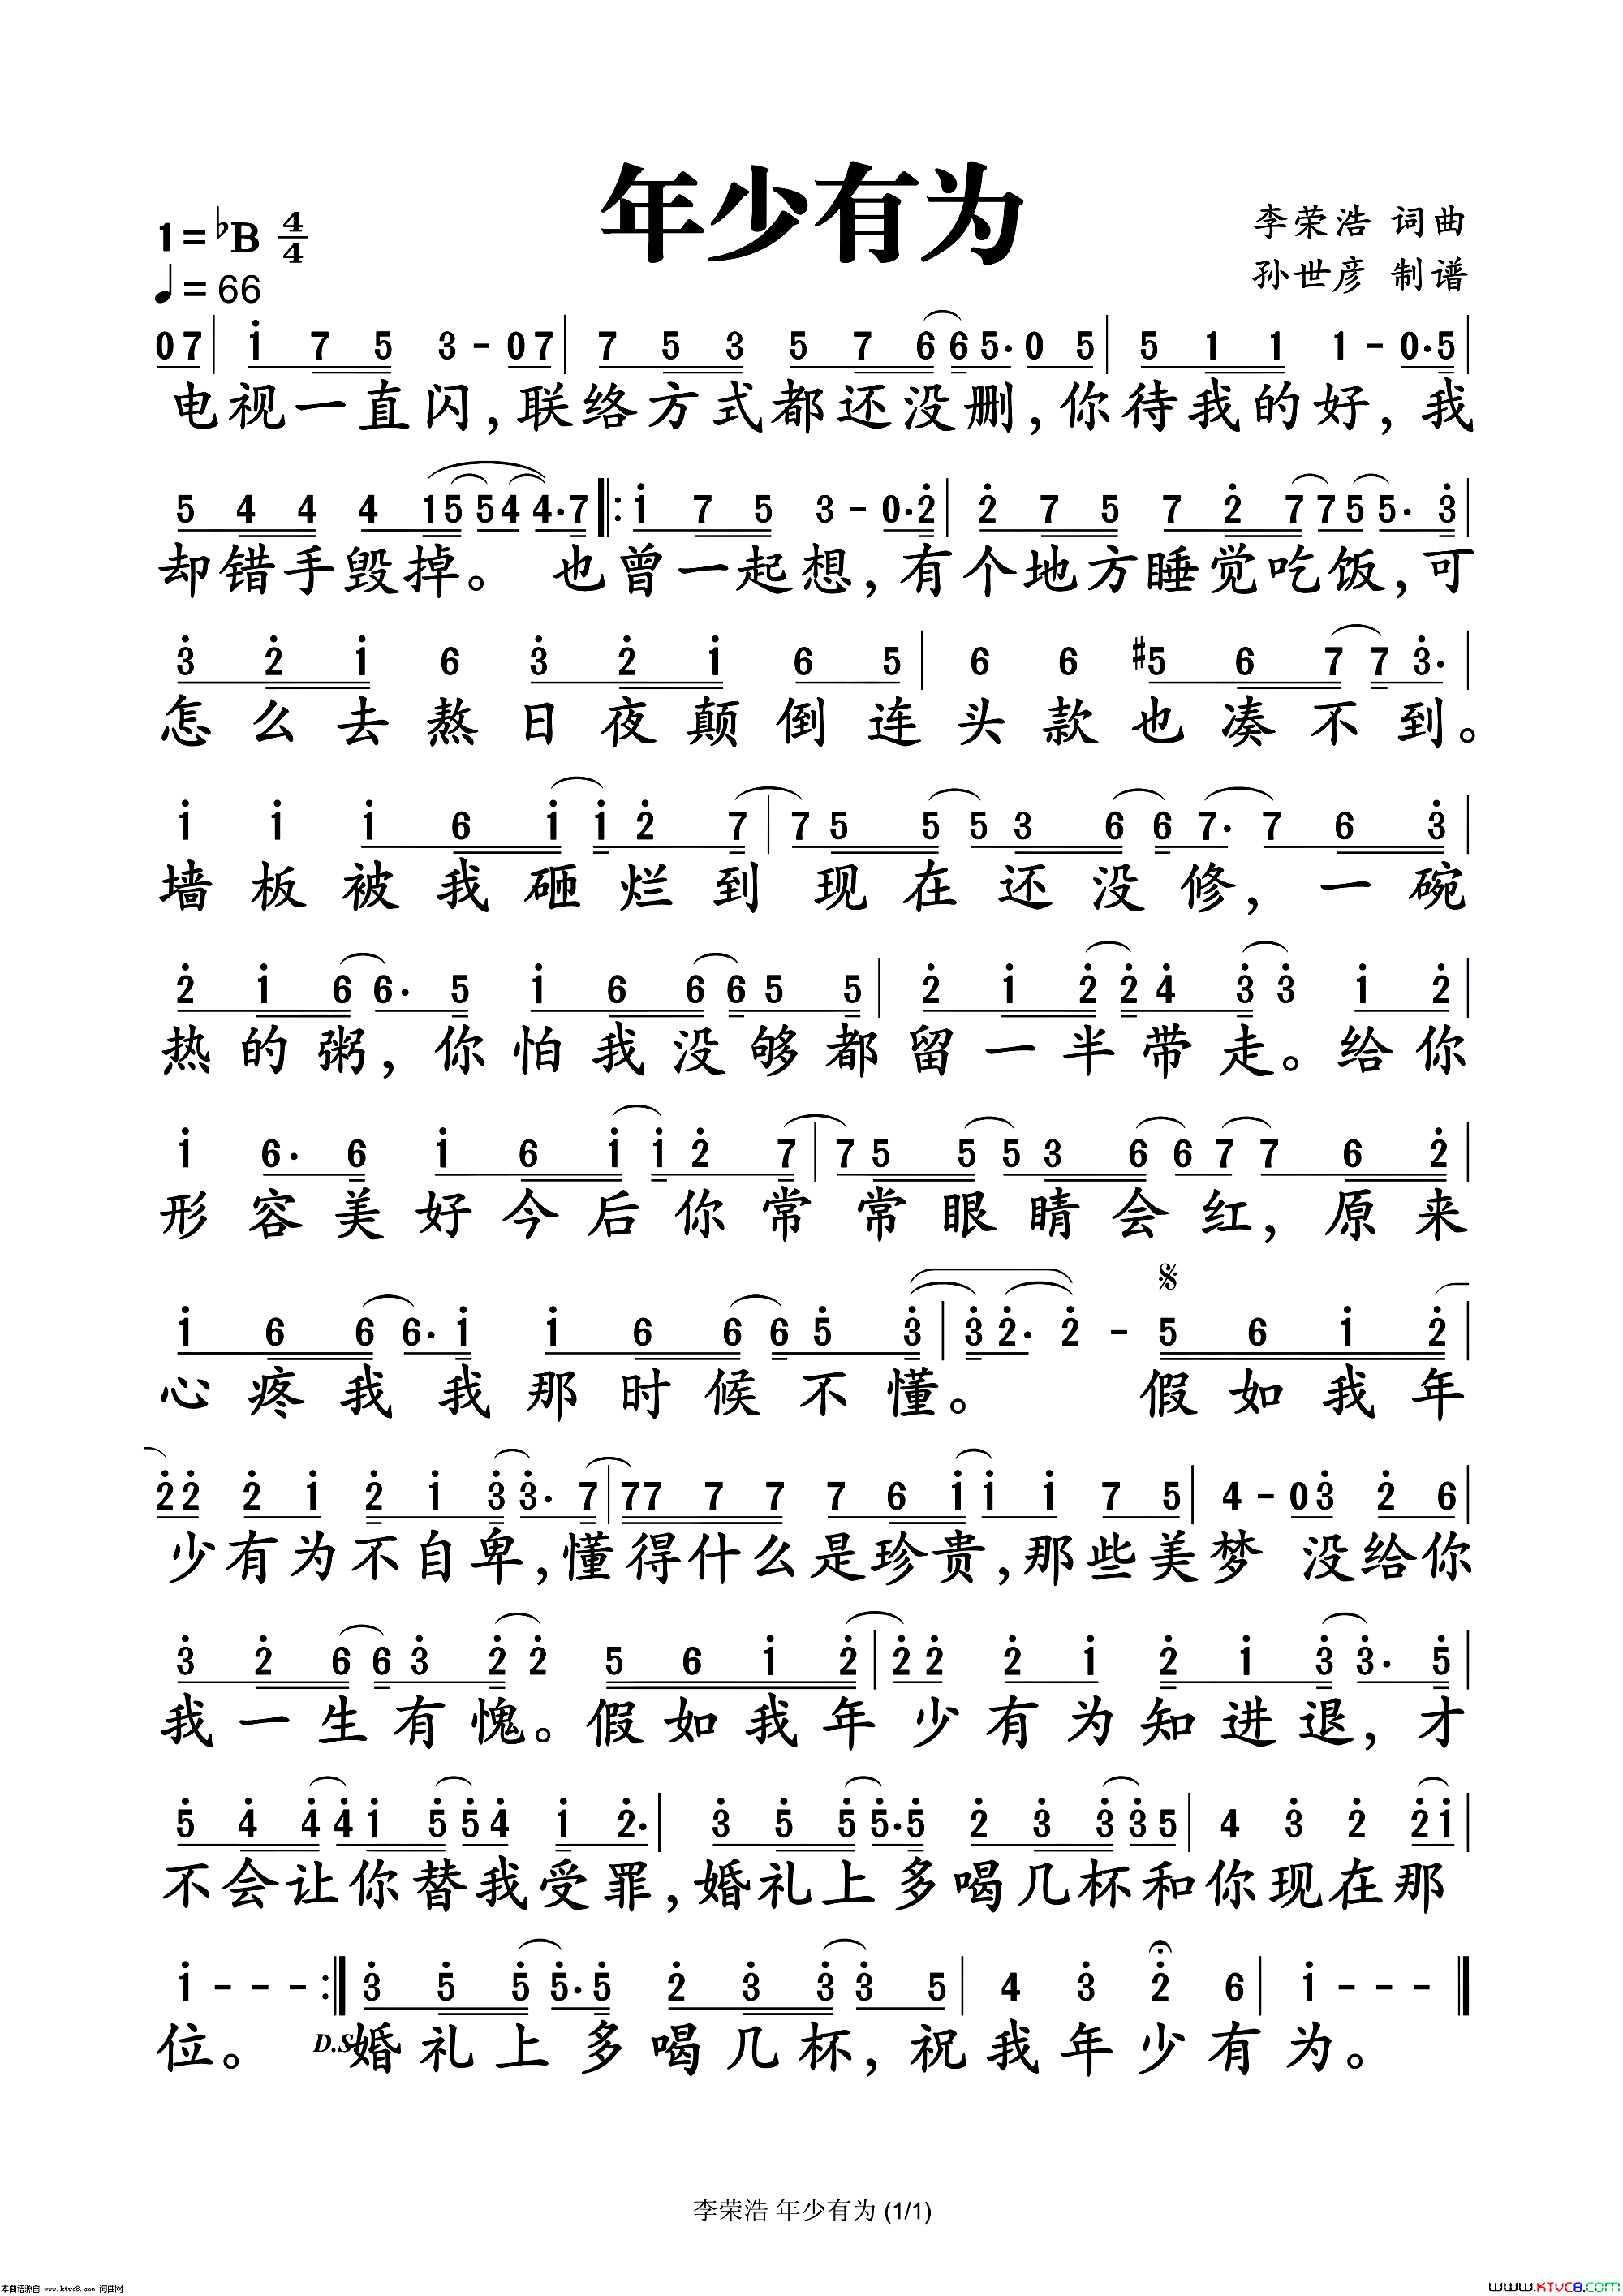 年少有为
1=♭B 4/4
♩=66
李荣浩 词曲
孙世彦 制谱
07| i 7 5 3 - 07| 7 5 3 5 7 6 6 5. 0 5| 5 1 1 1 - 0.5|
电视一直闪,联络方式都还没删,你待我的好,我
5 4 4 4 1 5 5 4 4.7 ‖: i 7 5 3 - 0.2̇| 2̇ 7 5 7 2̇ 7 7 5 5. 3̇|
却错手毁掉。 也曾一起想,有个地方睡觉吃饭,可
3̇ 2̇ i 6 3̇ 2̇ i 6 5| 6 6 #5 6 7 7 3̇.|
怎么去熬日夜颠倒连头款也凑不到。
i i i 6 i i 2̇ 7| 7 5 5 5 3 6 6 7. 7 6 3̇|
墙板被我砸烂到现在还没修,一碗
2̇ i 6 6. 5 i 6 6 6 5 5| 2̇ i 2̇ 2̇ 4̇ 3̇ 3̇ i 2̇|
热的粥,你怕我没够都留一半带走。给你
i 6. 6 i 6 i i 2̇ 7| 7 5 5 5 3 6 6 7 7 6 2̇|
形容美好今后你常常眼睛会红,原来
i 6 6 6. i i 6 6 6 5̇ 3̇| 3̇ 2̇. 2̇ - 5 6 i 2̇|
心疼我我那时候不懂。 假如我年
2̇ 2̇ 2̇ i 2̇ i 3̇ 3̇. 7| 7 7 7 7 7 6 i i i 7 5| 4 - 0 3̇ 2̇ 6|
少有为不自卑,懂得什么是珍贵,那些美梦 没给你
3̇ 2̇ 6 6 3̇ 2̇ 2̇ 5 6 i 2̇| 2̇ 2̇ 2̇ i 2̇ i 3̇ 3̇. 5̇|
我一生有愧。假如我年少有为知进退,才
5̇ 4̇ 4̇ 4̇ i 5̇ 5̇ 4̇ i 2̇.| 3̇ 5̇ 5̇ 5̇. 5̇ 2̇ 3̇ 3̇ 3̇ 5| 4 3̇ 2̇ 2̇ i|
不会让你替我受罪,婚礼上多喝几杯和你现在那
i - - - :‖ 3̇ 5̇ 5̇ 5̇. 5̇ 2̇ 3̇ 3̇ 3̇ 5| 4 3̇ 2̇ 6| i - - - ‖
位。 D.S 婚礼上多喝几杯,祝我年少有为。
李荣浩 年少有为 (1/1)
本曲谱源自 www.ktvc8.com 词曲网
WWW.KTVC8.COM